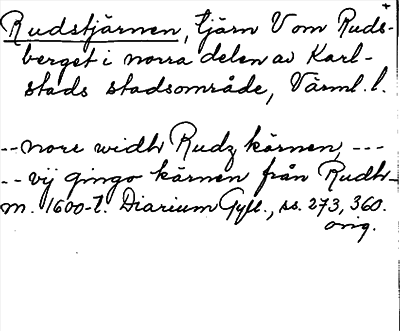 Rudstjärnen, tjärn V om Ruds-
berget i norra delen av Karl-
stads stadsområde, Värml. l.
-- nore widh Rudz kärnen, ---
-- vij gingo kärnen från Rudh --
m. 1600-t. Diarium Gyll., ss. 273, 360.
orig.